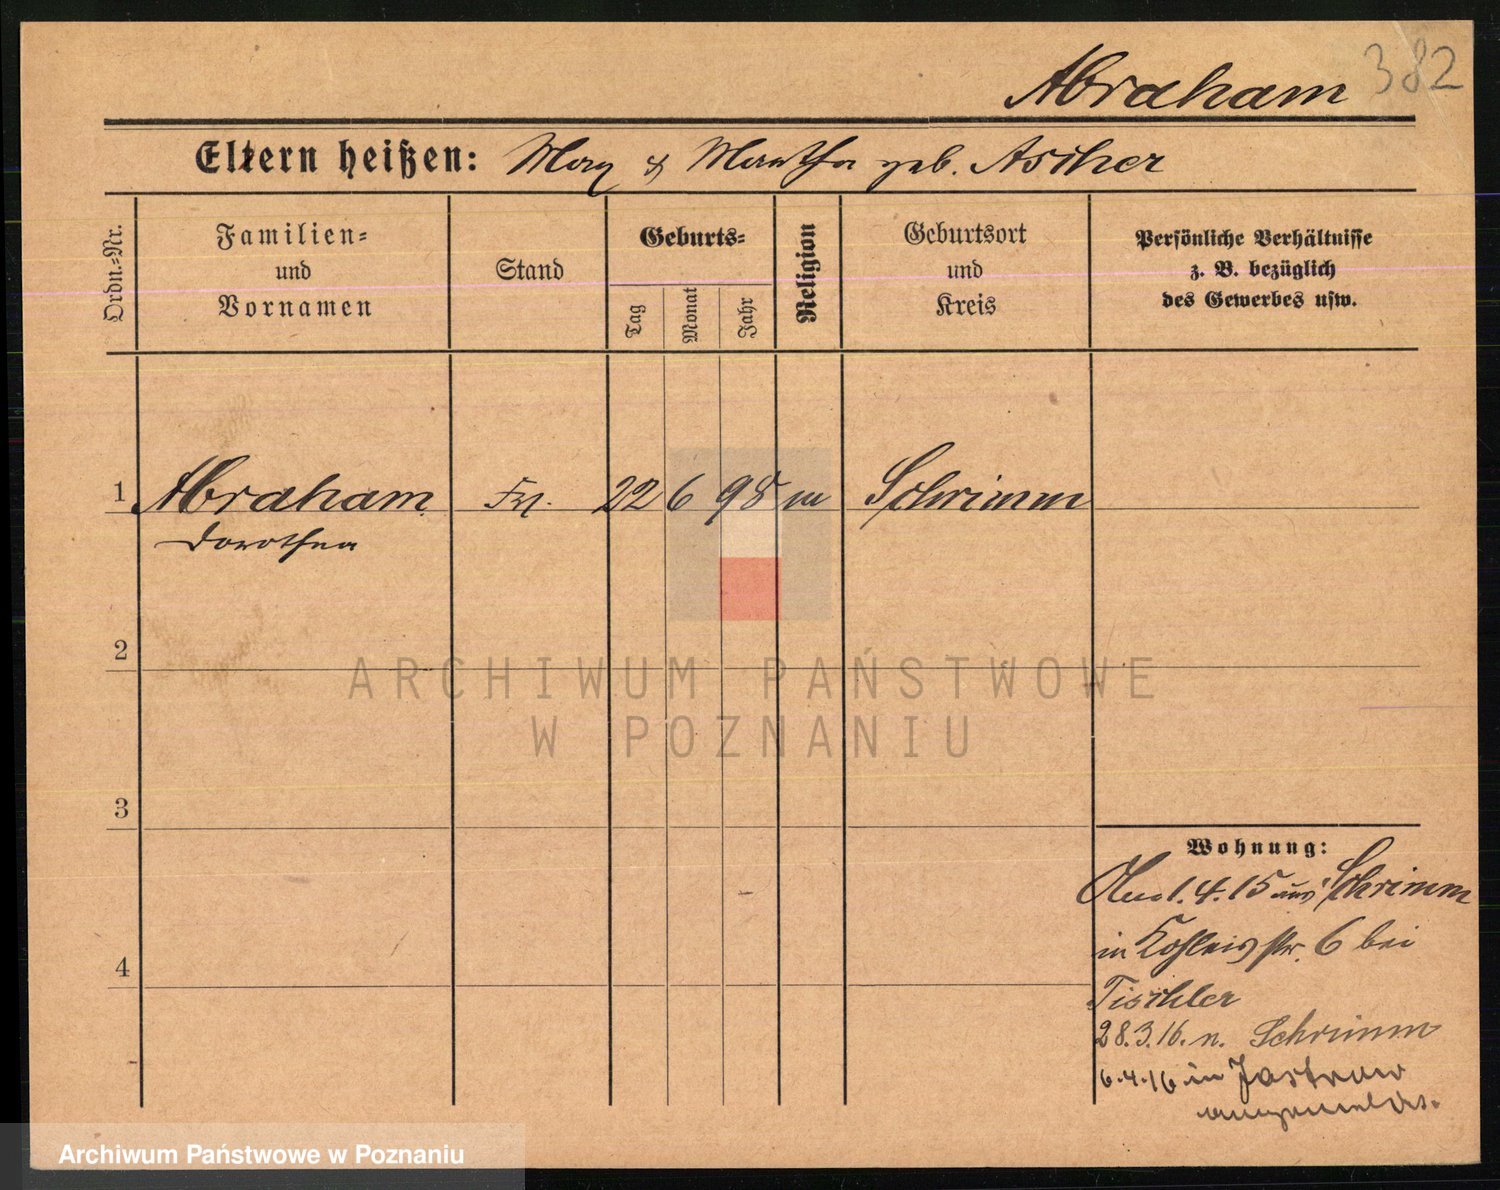 Abraham 382
Eltern heißen: Max & Martha geb. Ascher
Ordn.-Nr.
Familien-
und
Vornamen
Stand
Geburts-
Tag
Monat
Jahr
Religion
Geburtsort
und
Kreis
Persönliche Verhältnisse
z. B. bezüglich
des Gewerbes usw.
1 Abraham Frl. 22 6 98 m Schrimm
Dorothea
2
ARCHIWUM PAŃSTWOWE
W POZNANIU
3
Wohnung:
1.4.15 aus Schrimm
4
in str. 6 bei
Tischler
28.3.16. n. Schrimm
6.4.16 in Jastrow
angemeldet.
Archiwum Państwowe w Poznaniu